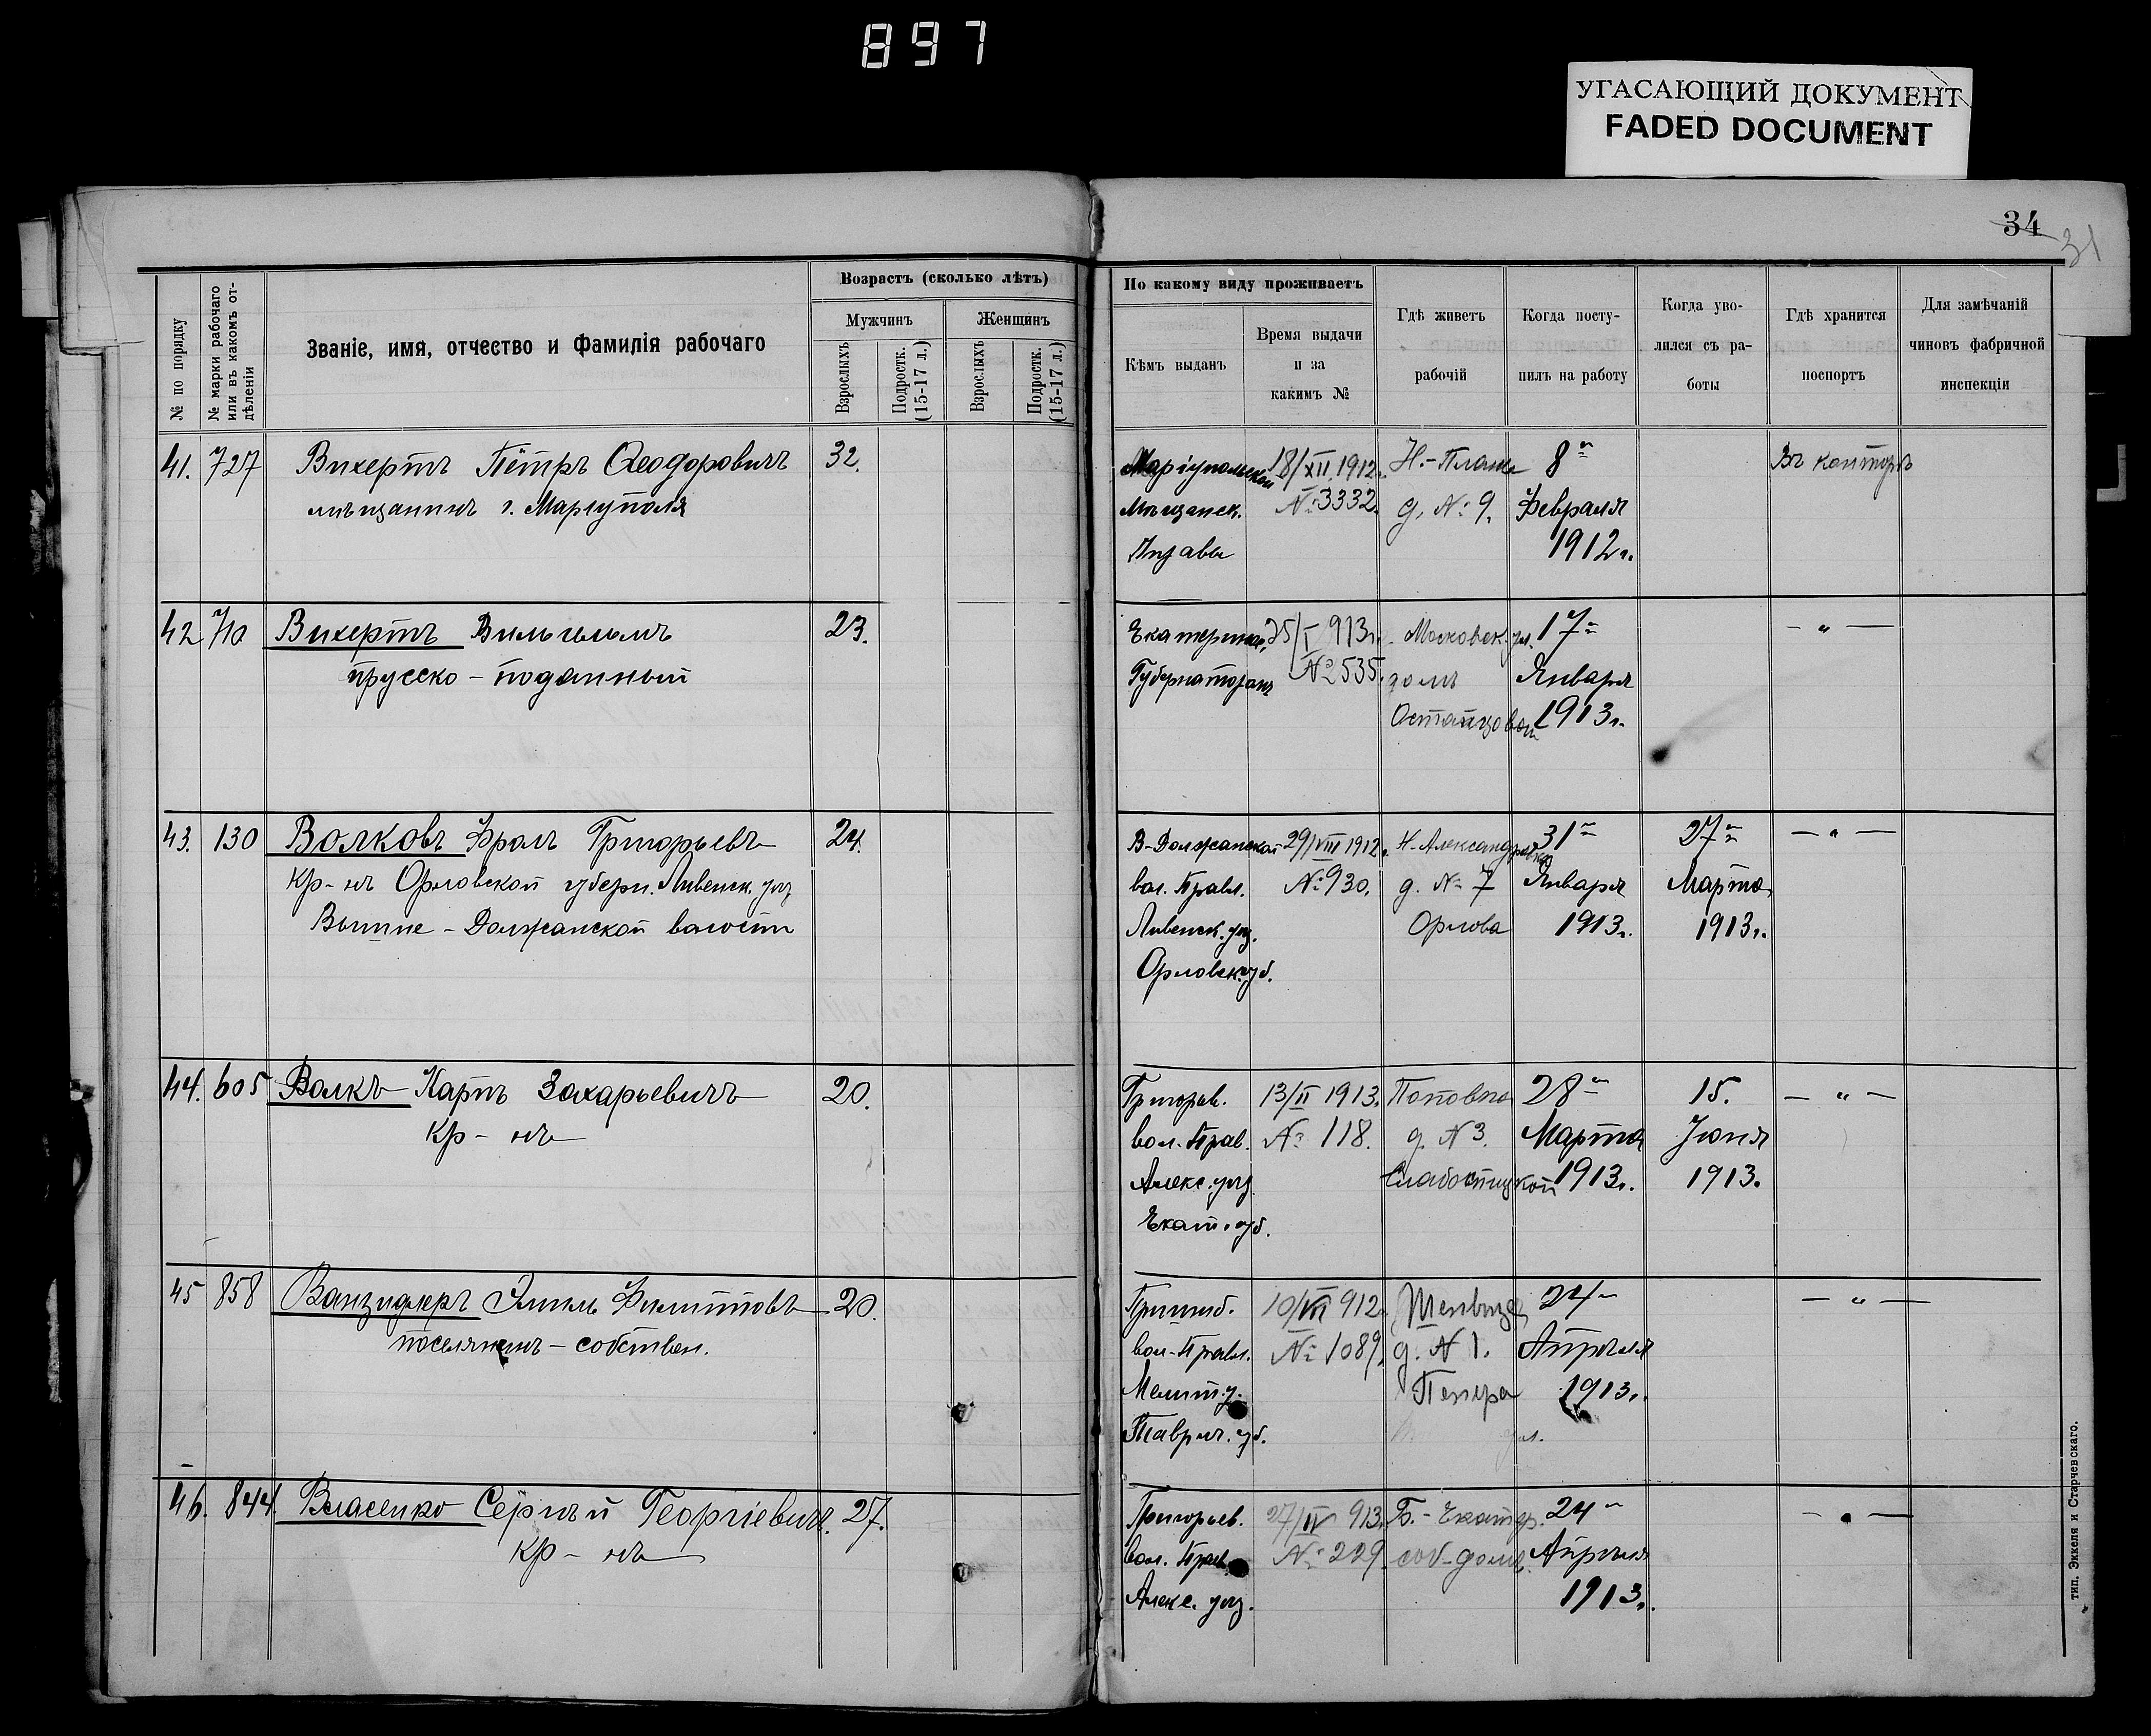 897
УГАСАЮЩИЙ ДОКУМЕНТ
FADED DOCUMENT
34
31
№ по порядку
№ марки рабочаго
или въ какомъ от-
дѣленіи
Званіе, имя, отчество и фамилія рабочаго
Возрастъ (сколько лѣтъ)
Мужчинъ
Женщинъ
Взрослыхъ
Подростк.
(15-17 л.)
Взрослыхъ
Подростк.
(15-17 л.)
По какому виду проживаетъ
Кѣмъ выданъ
Время выдачи
и за
какимъ №
Гдѣ живетъ
рабочій
Когда посту-
пилъ на работу
Когда уво-
лился съ ра-
боты
Гдѣ хранится
поспортъ
Для замѣчаній
чиновъ фабричной
инспекціи
41. 727 Вихертъ Пётръ Ѳеодоровичъ 32.
мѣщанинъ г. Маріуполя
Маріупольской 18/XII 1912г. Н.-Плане 8го Въ конторѣ
Мѣщанск. №3332. д. №9. Февраля
Управы 1912г.
42 710 Вихертъ Вильгельмъ 23.
прусско-поданный
Екатеринос. 25/I 913г. Московск. ул. 17го — „ —
Губернаторомъ №2535. домъ Января
1913г.
43. 130 Волковъ Фролъ Григорьевъ 24.
кр-нъ Орловской губерн. Ливенск. уѣз
Вышне-Должанской волости
В-Должанской 29/VIII 1912г. Н.Александровка 31го 27го — „ —
вол. Правл. №930. д. №7 Января Марта
Ливенск. уѣз. Орлова 1913г. 1913г.
Орловск. губ.
44. 605 Волкъ Карпъ Захарьевичъ 20.
кр-нъ
Григорьев. 13/II 1913. Поповка 28го 15. — „ —
вол. Прав. № 118. д. №3. Марта Іюня
Алекс. уѣзд. Слабошицкой 1913г. 1913.
Екат. губ.
45 858 Ванзидлеръ Эмиль Филипповъ 20.
поселянинъ-собствен.
10/VII 912г. 24го — „ —
вол. Правл. №1089. д. №1. Апрѣля
Мелит. у. 1913г.
Таврич. губ.
46. 844. Власенко Сергѣй Георгіевичъ. 27.
кр-нъ
Григорьев. 27/IV 913. Б.-Екатер. 24го — „ —
вол. Прав. №229. соб-домъ. Апрѣля
Алекс. уѣз. 1913г.
тип. Эккеля и Старчевскаго.